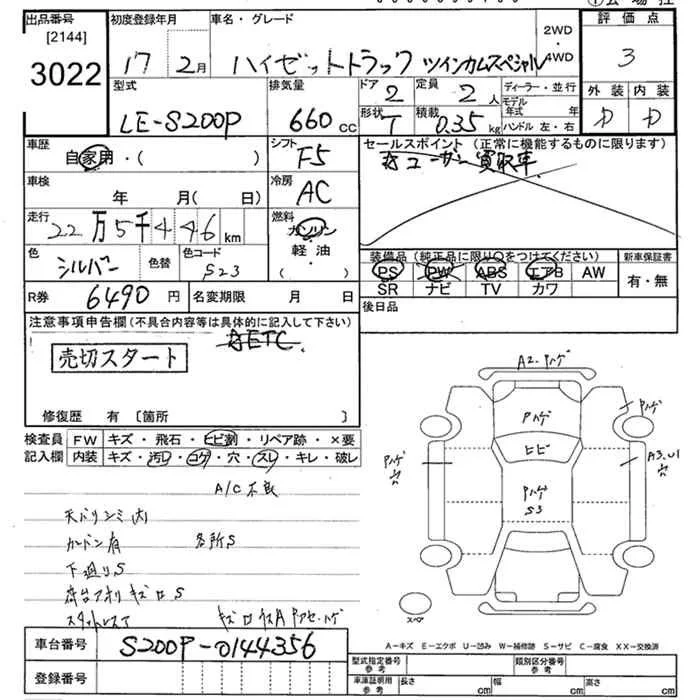 出品番号 初度登録年月 車名・グレード 評価点
[2144]
3022 17 2月 ハイゼットトラック ツインカムスペシャル 2WD 4WD 3
型式 排気量 ドア 定員 ディーラー・並行 外装 内装
LE-S200P 660 cc 2 2人 モデル年式 年 D D
形状 積載 ハンドル 左・右
T 0.35 kg
車歴 自家用・( ) シフト F5 セールスポイント(正常に機能するものに限ります)
ユーザー買取車
車検 年 月( 日) 冷房 AC
走行 22万5千446km 燃料 ガソリン 軽油 ・( )
色 シルバー 色替 色コード S23
装備品(純正品に限り〇をつけてください) 新車保証書
PS PW ABS エアB AW 有・無
SR ナビ TV カワ
R券 6490円 名変期限 月 日 後日品
注意事項申告欄(不具合内容等は具体的に記入して下さい)
ETC
売切スタート
修復歴 有 [箇所 ]
検査員記入欄 FW キズ・飛石・ヒビ割・リペア跡・×要
内装 キズ・汚レ・コゲ・穴・スレ・キレ・破レ
A/C不良
天バリシミ
有 各所S
下廻りS
荷台アオリ キズ S
スタットレス
A2.Pハゲ
Pハゲ
Pハゲ
ヒビ
Pハゲ
A3.U1
Pハゲ
S3
スペア
A-キズ E-エクボ U-凹み W-補修跡 S-サビ C-腐食 XX-交換済
車台番号 S200P-0144356
登録番号
型式指定番号 参考 類別区分番号 参考
車庫証明用 参考 長さ cm 幅 cm 高さ cm